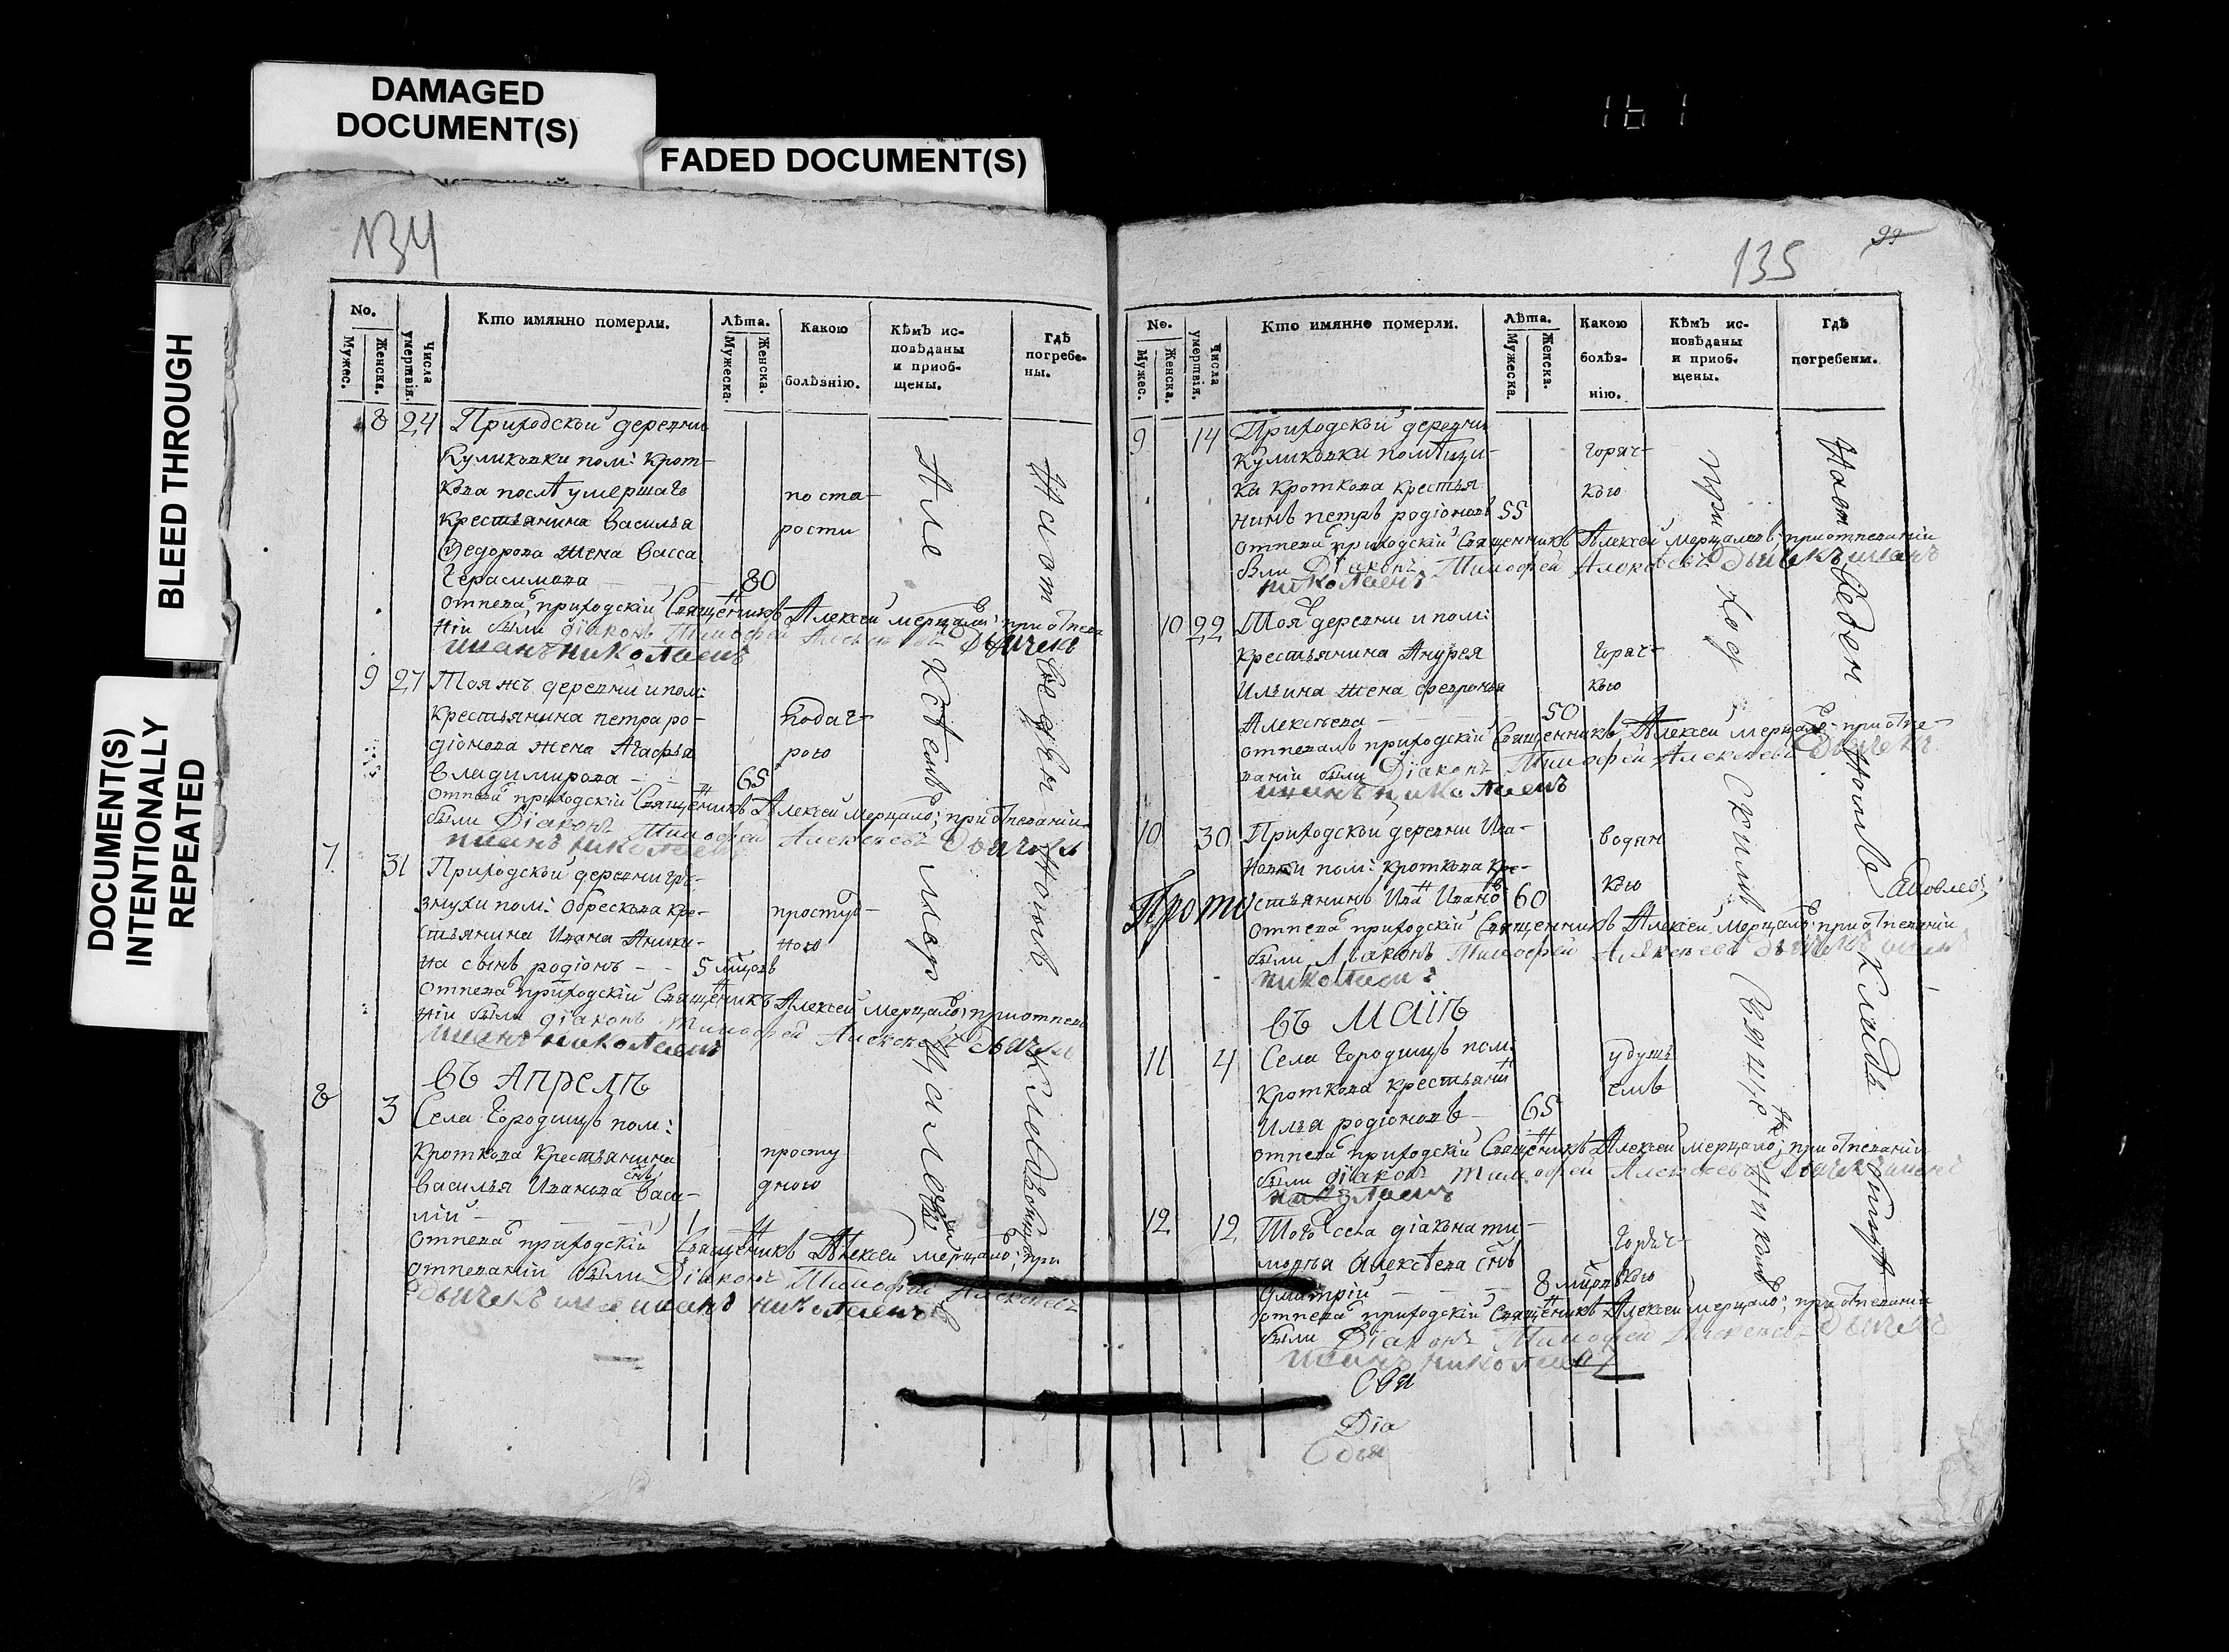 DAMAGED
DOCUMENT(S)
FADED DOCUMENT(S)
BLEED THROUGH
DOCUMENT(S)
INTENTIONALLY
REPEATED
161
134
No.
Мужес.
Женска.
Числа умертвія.
Кто имянно померли.
Лѣта.
Мужеска.
Женска.
Какою
болѣзнію.
Кѣмъ ис-
повѣданы
и приоб-
щены.
Гдѣ
погребе-
ны.
8 24 Приходской деревни
Куликовки пом: Крот-
кова послѣ умершаго по ста-
крестьянина Василья рости
Ѳедорова жена Васса
Герасимова 80
отпевалъ приходскій Священникъ Алексей Мерцаловъ; при отпева
ніи были діаконъ Тимофей Алексеевъ Дьячекъ
иванъ николаевъ
9 27 Тояжъ деревни и пом:
крестьянина Петра ро-
діонова жена Агафья
Владимирова 65
отпевалъ приходскій Священникъ Алексей Мерцаловъ; при отпеваніи
были Діаконъ Тимофей Алексеевъ Дьячекъ
иванъ николаевъ
7. 31 Приходской деревни Гре-
змухи пом: Обрескова кре- простуд-
стьянина Ивана Аники- ною
на сынъ родіонъ 5 мцовъ
отпевалъ приходскій Священникъ Алексей Мерцаловъ; при отпева
ніи были діаконъ Тимофей Алексеевъ Дьячекъ
иванъ николаевъ
въ Апрелѣ
8 3 Села Городищъ пом:
Кроткова крестьянина просту
Василья Иванова снъ Васи- дною
лій 1
отпевалъ приходскій Священникъ Алексей Мерцаловъ; при
отпеваніи были Діаконъ Тимофей Алексеевъ
дьячекъ иванъ николаевъ
На отведенномъ кладбищѣ
99
135
No.
Мужес.
Женска.
Числа умертвія.
Кто имянно померли.
Лѣта.
Мужеска.
Женска.
Какою
болѣз-
нію.
Кѣмъ ис-
повѣданы
и приоб-
щены.
Гдѣ
погребены.
9 14 Приходской деревни
Куликовки помѣщи- горяч-
ка Кроткова крестья кою
нинъ Петръ родіоновъ 55
отпевалъ приходскій Священникъ Алексей Мерцаловъ; при отпеваніи
были Діаконъ Тимофей Алексеевъ Дьячекъ иванъ
николаевъ
10 22 Тоя деревни и пом:
крестьянина Андрея горяч-
Ильина жена Февронья кою
Алексеева 50
отпевалъ приходскій Священникъ Алексей Мерцаловъ; при отпе-
ваніи были Діаконъ Тимофей Алексеевъ Дьячекъ
иванъ николаевъ
10 30 Приходской деревни Ива- водян
новки пом: Кроткова кре- кою
стьянинъ Иванъ Ивановъ 60
отпевалъ приходскій Священникъ Алексей Мерцаловъ; при отпеваніи
были Діаконъ Тимофей Алексеевъ дьячекъ иванъ
николаевъ
въ Маіѣ
11 4 Села Городищъ пом: удушь
Кроткова крестьянинъ емъ
Илья родіоновъ 65
отпевалъ приходскій Священникъ Алексей Мерцаловъ; при отпеваніи
были діаконъ Тимофей Алексеевъ Дьячекъ иванъ
николаевъ
12 12 Того села діакона ти-
мофея Алексеева снъ горяч-
Дмитрій 8 мцовъ кою
отпевалъ приходскій Священникъ Алексей Мерцаловъ; при отпеваніи
были Діаконъ Тимофей Алексеевъ Дьячекъ
иванъ николаевъ
приходскимъ Священникомъ
На отведенномъ кладбищѣ
Прото
Яковлевъ
Свя
Діа